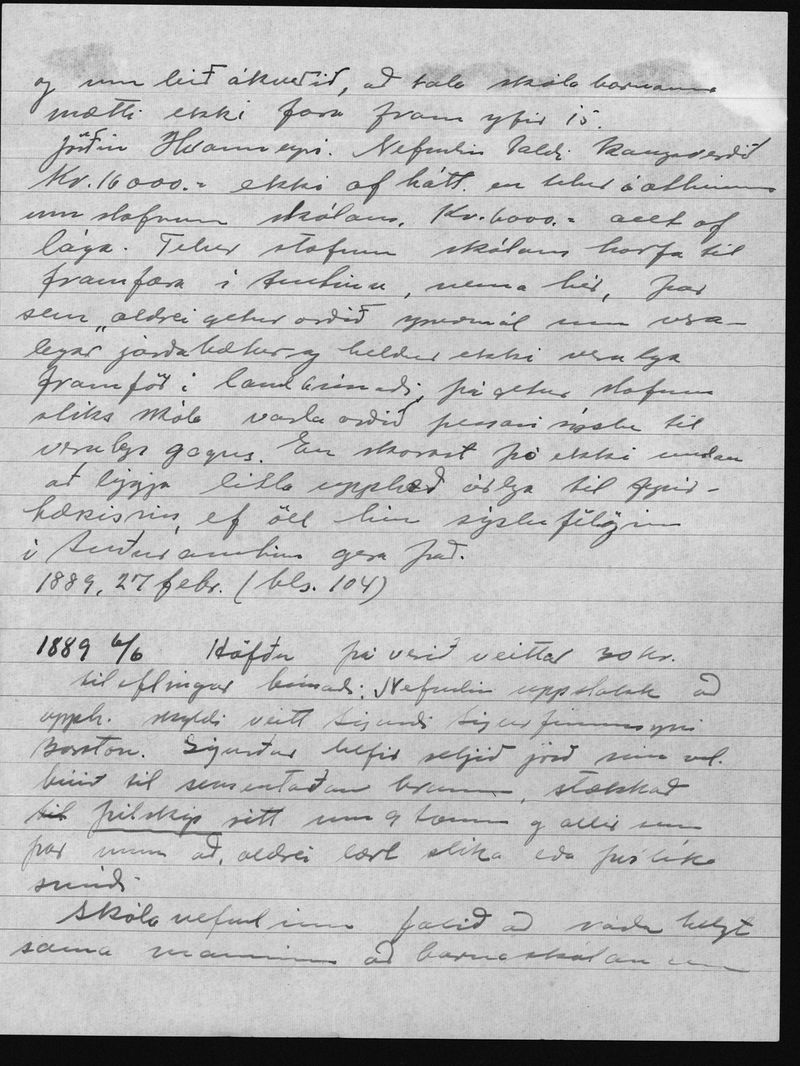 og um leið ákveðið, að tala skóla barnanna
mætti ekki fara fram yfir 15.
Jörðin Hvanneyri. Nefndin taldi kaupverðið
Kr. 16000.- ekki of hátt en tekur
um stofnun skólans, Kr. 6000.- allt of
lága. Telur stofnun skólans horfa til
framfara í Amtinu, nema hér, þar
sem "aldrei getur orðið spursmál um veru-
legar jarðabætur og heldur ekki verulega
framför í landbúnaði, þá getur stofnun
slíks skóla varla orðið þessari sýslu til
verulegs gagns. En skorast þó ekki undan
að leggja litla upphæð árlega til fyrir-
tækisins, ef öll hin sýslufélögin
í Suðuramtinu gera það.
1889, 27 febr. (bls. 104)
1889 6/6 Höfðu þá verið veittar 30 kr.
til eflingar búnaði. Nefndin uppástakk að
upph. skyldi veitt Sigurði Sigurfinnssyni
. Sigurður hefir setjið jörð sína vel.
búið til sementaðan brunn, stækkað
þilskip sitt um 9 tonn og allir sem
þar unnu að, aldrei lært slíka eða því líka
smíði.
Skólanefndinni falið að ráða helzt
sama manninn að barnaskólanum